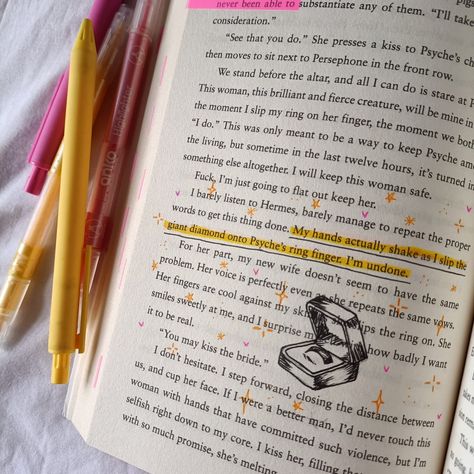 never been able to substantiate any of them. "I'll take
consideration."
"See that you do." She presses a kiss to Psyche's ch
then moves to sit next to Persephone in the front row.
We stand before the altar, and all I can do is stare at P
This woman, this brilliant and fierce creature, will be mine in
the moment I slip my ring on her finger, the moment we both
"I do." This was only meant to be a way to keep Psyche am
the living, but sometime in the last twelve hours, it's turned in
something else altogether. I will keep this woman safe.
Fuck, I'm just going to flat out keep her.
I barely listen to Hermes, barely manage to repeat the proper
words to get this thing done. My hands actually shake as I slip the
giant diamond onto Psyche's ring finger. I'm undone.
For her part, my new wife doesn't seem to have the same
problem. Her voice is perfectly even as she repeats the same vows.
Her fingers are cool against my skin slips the ring on. She
smiles sweetly at me, and I surprise my how badly I want
it to be real.
"You may kiss the bride."
I don't hesitate. I step forward, closing the distance between
us, and cup her face. If I were a better man, I'd never touch this
woman with hands that have committed such violence, but I'm
selfish right down to my core. I kiss her, filling the
with so much promise, she's melting